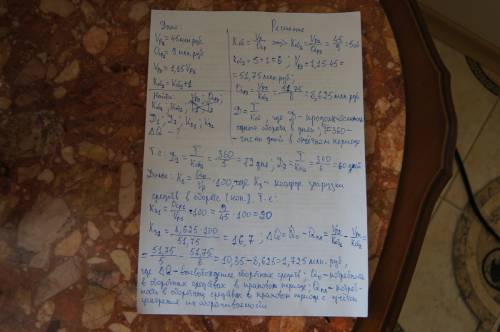 Дано:
Vр₁ = 45 млн руб
Q̄ср₁ = 9 млн. руб.
Vр₂ = 1,15 Vр₁
Коб₂ = Коб₁ + 1
Найти:
Коб₁; Коб₂; Vр₂; Q̄ср₂;
Д₁; Д₂; Kз₁; Kз₂
ΔQ - ?
Решение
Коб = Vр/Q̄ср => Коб₁ = Vр₁/Q̄ср₁ = 45/9 = 5 об
Коб₂ = 5 + 1 = 6; Vр₂ = 1,15·45 =
= 51,75 млн руб;
Q̄ср₂ = Vр₂/Коб₂ = 51,75/6 = 8,625 млн руб
Д = T/Коб, где Д - продолжительность
одного оборота в днях; T = 360 -
число дней в отчетном периоде
Т.е.: Д₁ = T/Коб₁ = 360/5 = 72 дня; Д₂ = T/Коб₂ = 360/6 = 60 дней
Далее: Kз = Q̄ср/Vр · 100, где Kз - коэффиц. загрузки
средств в обороте (коп.). Т.е.:
Kз₁ = Q̄ср₁/Vр₁ · 100 = 9/45 · 100 = 20
Kз₂ = 8,625·100/51,75 = 16,7; ΔQ = Q̄о - Q̄пл = Vр₂/Коб₁ - Vр₂/Коб₂ =
= 51,75/5 - 51,75/6 = 10,35 - 8,625 = 1,725 млн. руб.,
где ΔQ - высвобождение оборотных средств; Q̄о - потребность
в оборотных средствах в плановом периоде; Q̄пл - потреб-
ность в оборотных средствах в плановом периоде с учетом
ускорения их оборачиваемости